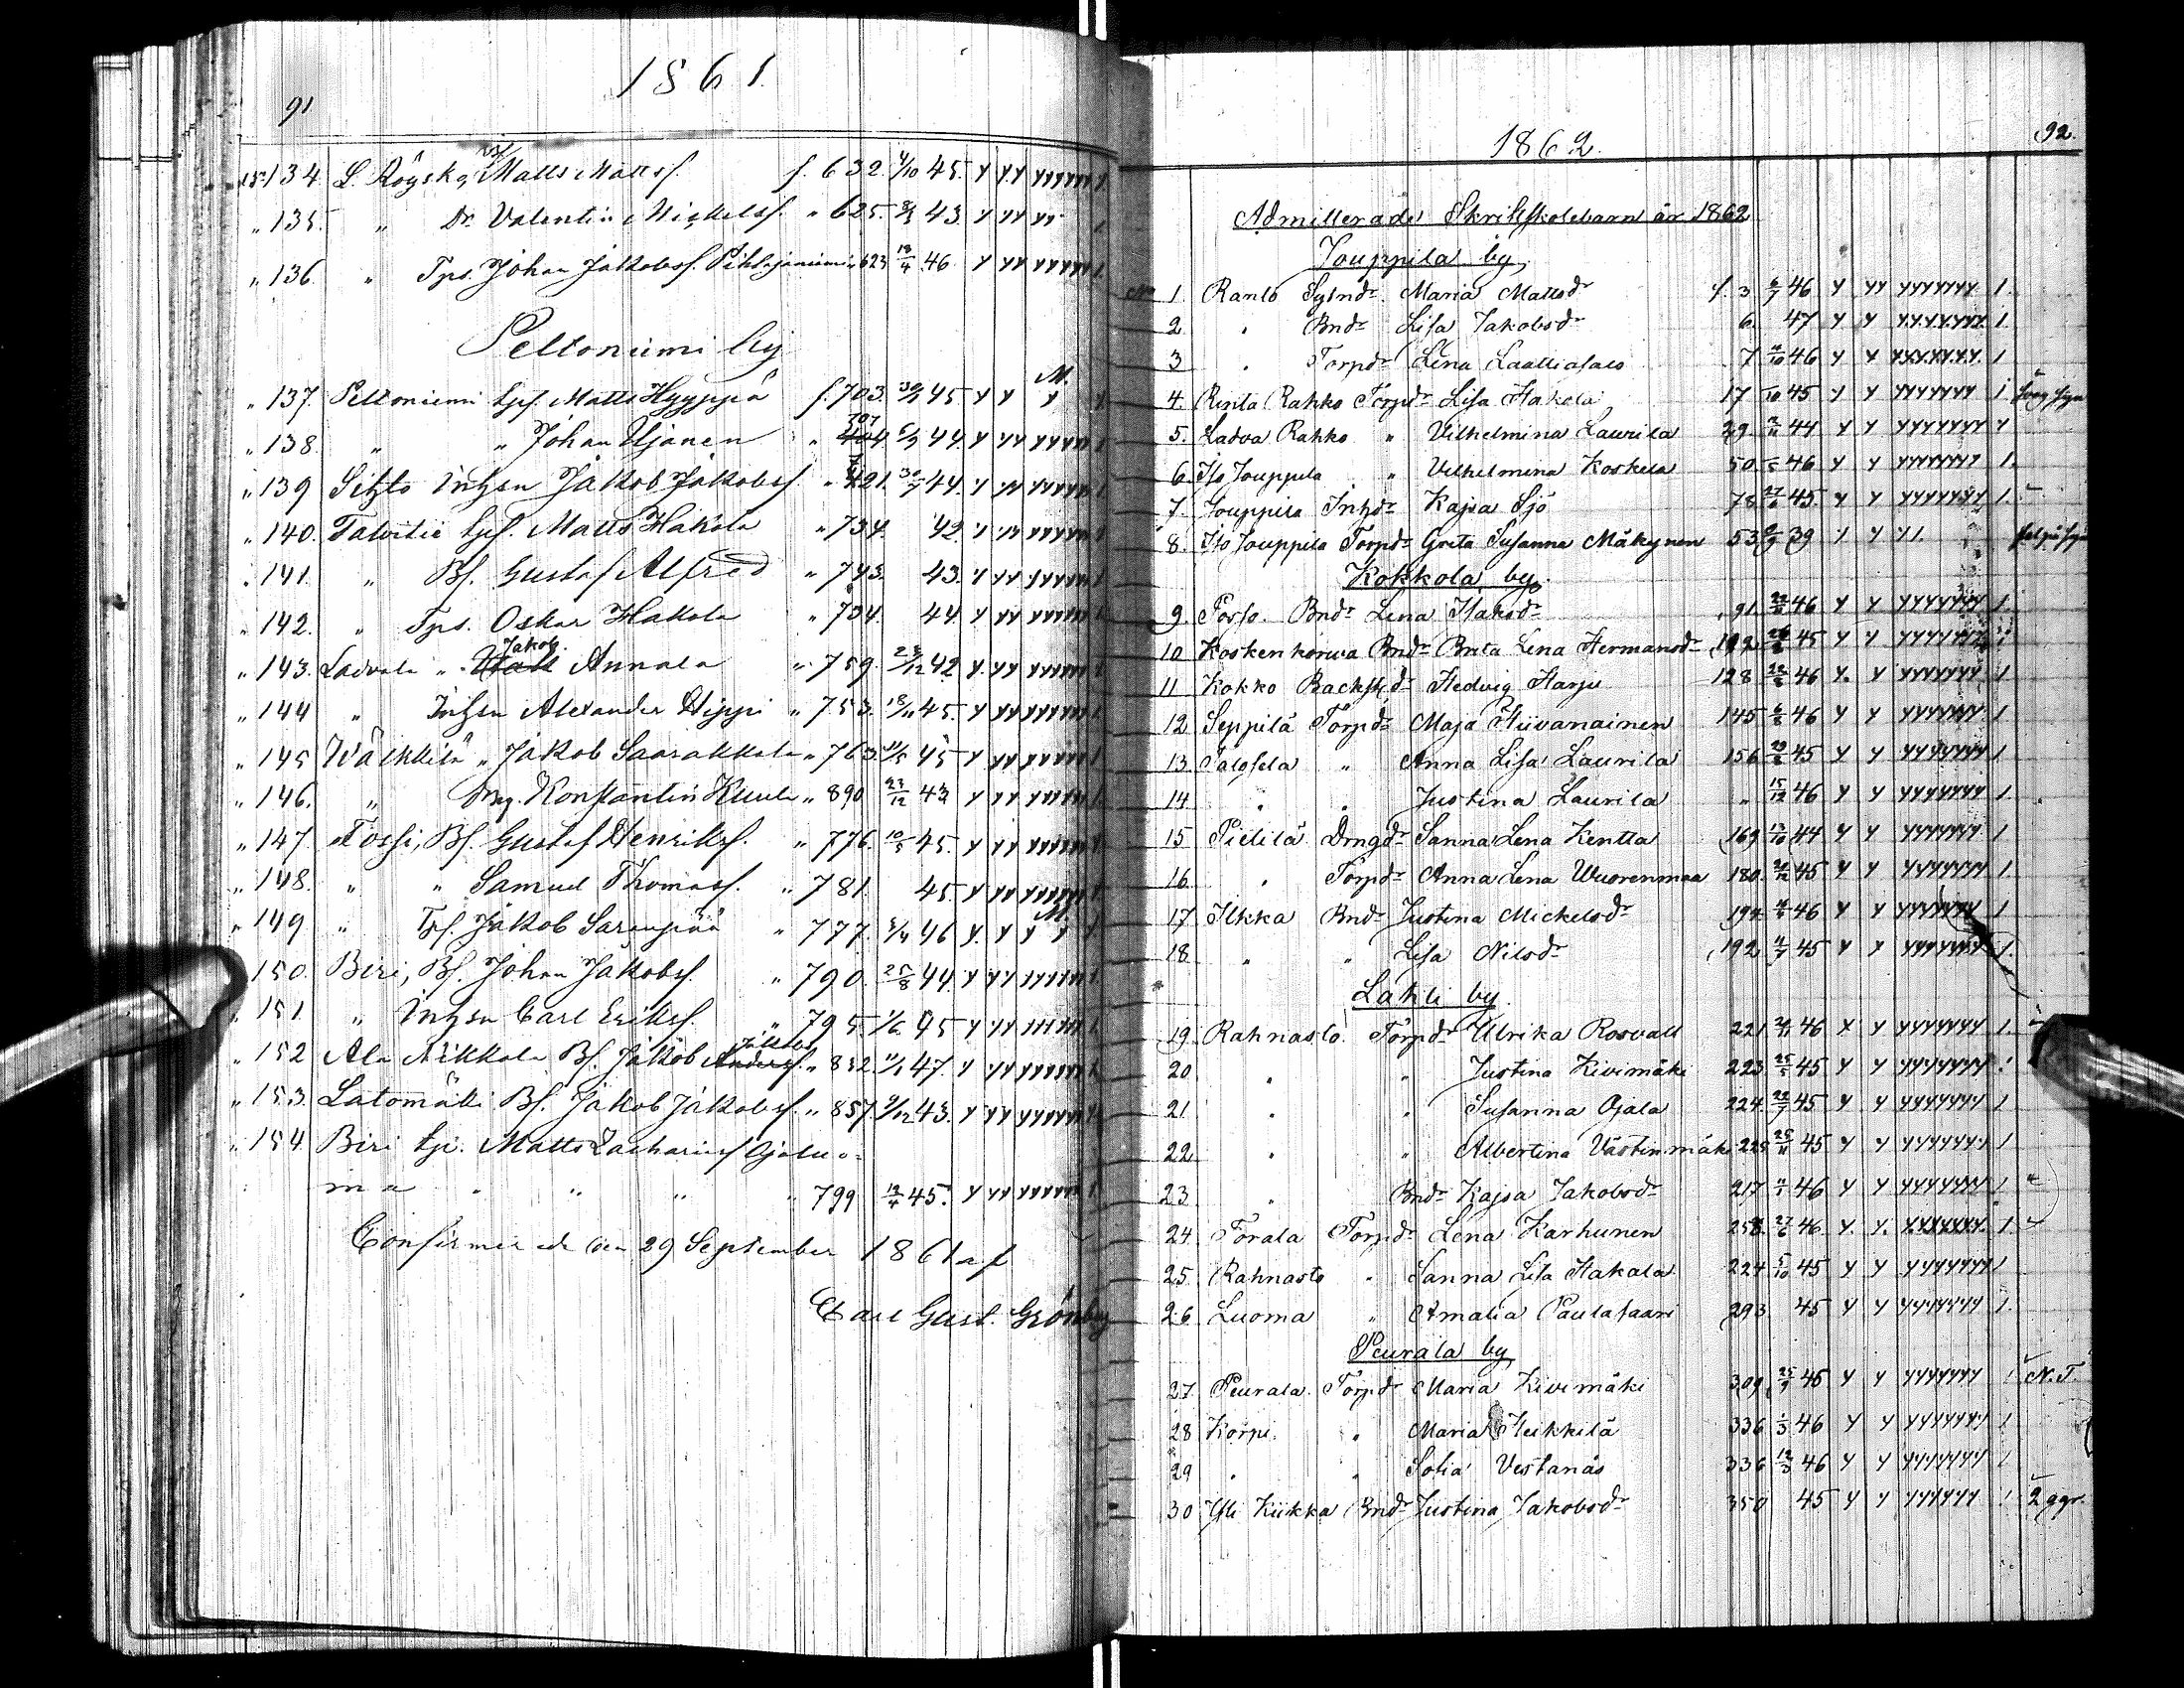 1861.
91
134 L. Röysky Matts Mattss. f. 632. 4/10 45. y yy yyyyyy 1.
" 135. " Dr. Valentin Mickelss. " 625. 43. y yy yy 1
" 136. " Tps. Johan Jakobss. Pihlajaniemi " 623 18/4 46 y yy yyyyyy 1.
Peltoniemi by
" 137. Peltoniemi tps. Matts Hyyppä f. 703. 45 y y M. y 1
" 138. " " Johan Ujanen " 707 44. y yy yyyyyy 1.
" 139 Inhsn Jakob Jakobss. " 721. 44. y yy yyyyyy 1.
" 140. Talvitie tps. Matts Hakola " 734. 42. y yy yyyyyy 1.
" 141. " Bs. Gustaf Alfred " 743. 43. y yy yyyyyy 1.
" 142. " Tps. Oskar Hakola " 734. 44. y yy yyyyyy 1.
" 143. Ladvala " Jakob Annala " 759. 23/12 42. y yy yyyyyy 1.
" 144 " Inhsn Alexander Hippi " 753. 18/11 45. y yy yyyyyy 1.
" 145 Wälkkilä " Jakob Saarakkala " 763. 11/5 45 y yy yyyyyy 1.
" 146. " Drg. Konstantin Kuula " 890 23/12 43 y yy yyyyyy 1.
" 147. Tossi, Bs. Gustaf Henrikss. " 776. 10/5 45. y yy yyyyyy 1.
" 148. " " Samuel Thomass. " 781. 45. y yy yyyyyy 1
" 149 " Tps. Jakob Saranpää " 777. 46 y. y y M. y 1
" 150. Biri, Bs. Johan Jakobss. " 790. 25/8 44. y yy yyyyyy 1.
" 151. " Inhsn Carl Erikss. " 795. 1/6 45 y yy yyyyyy 1.
" 152 Ala Nikkola Bs. Jakob Jakobss. Anderss. " 852. 11/1 47. y yy yyyyyy 1.
" 153. Latomäki Bs. Jakob Jakobss. " 857. 9/12 43. y yy yyyyyy 1.
" 154 Biri tps. Matts Zachariass Ojaluo-
ma " " " " 799 12/4 45. y yy yyyyyy 1
Confirmerade den 29 September 1861 af
Carl Gust. Grönberg
92.
1862.
Admitterade Skriftskolebarn år 1862
Jouppila by
No 1. Ranto Sytndr Maria Mattsdr f. 3 6/7 46 y yy yyyyyyy 1.
2 " Bndr Lisa Jakobsdr 6. 47 y y yyyyyyy 1.
3 " Torpdr Lena 7 46 y y yyyyyyy 1
4. Rinta Rahko Torpdr Lisa Hakola 17 45 y y yyyyyyy 1
5. Ladva Rahko " Vilhelmina Laurila 29. 44 y y yyyyyyy y
6. Iso Jouppila " Vilhelmina Koskela 50. 46 y y yyyyyyy 1.
7. Jouppila Inhdr Kajsa Sjö 78 45. y y yyyyyyy 1.
8. Iso Jouppila Torpdr Greta Susanna Mäkynen 53 39 y y y 1.
Kokkola by.
9. Porto. Bndr Lena Isaksdr 91. 46 y y yyyyyyy 1.
10 Koskenkorwa Bndr Brita Lena Hermansdr 45 y y yyyyyyy 1
11 Kokko Backstdr Hedvig Harju 128 46 y. y yyyyyyy 1
12 Seppilä Torpdr Maja Hiivanainen 145 46 y y yyyyyyy 1
13 " Anna Lisa Laurila 156 45 y y yyyyyyy 1
14 " " Justina Laurila " 15/12 46 y y yyyyyyy 1.
15 Pietilä Drngdr Sanna Lena Kentta 169 13/10 44 y y yyyyyyy 1.
16. " Torpdr Anna Lena Wuorenmaa 180. 45 y y yyyyyyy 1.
17 Ilkka Bndr Justina Mickelsdr 46 y y yyyyyyy 1
18 " " Lisa Nilsdr 192 45 y y yyyyyyy 1.
Lahti by.
19. Rahnasto. Torpdr Ulrika Rosvall 221 46 y y yyyyyyy 1.
20 " " Justina Kivimäki 223 25/5 45 y y yyyyyyy 1
21 " " Susanna Ojala 224 22/7 45 y y yyyyyyy 1
22 " " Albertina Västinmäki 225 25/11 45 y y yyyyyyy 1
23 " Bndr Kajsa Jakobsdr 217 46 y y yyyyyyy 1
24. Torala Torpdr Lena Karhunen 258. 27/6 46. y. y. yyyyyyy. 1.
25. Rahnasto " Sanna Lisa Hakala 224 5/10 45 y y yyyyyyy 1
26 Luoma " Amalia Paulasaari 293. 45 y y yyyyyyy 1.
Peurala by
27. Peurala. Torpdr Maria Kivimäki 309 25/9 45 y y yyyyyyy 1 N. T.
28 Korpi " Maria Heikkilä 336 1/3 46 y y yyyyyyy 1
29 " " Sofia Vestanäs 336 12/3 46 y y yyyyyyy 1
30 Yli Kiikka Bndr Justina Jakobsdr 350 45 y y yyyyyy 1 2 ggr.